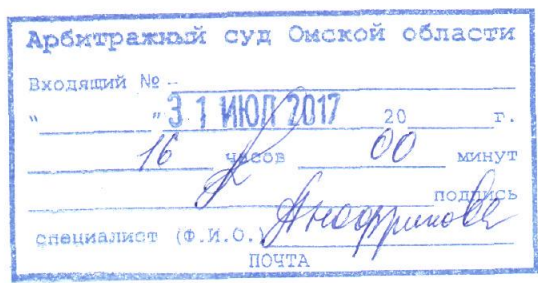 Арбитражный суд Омской области
Входящий №
" " 31 ИЮЛ 2017 20 г.
16 часов 00 минут
подпись
специалист (Ф.И.О.)
ПОЧТА